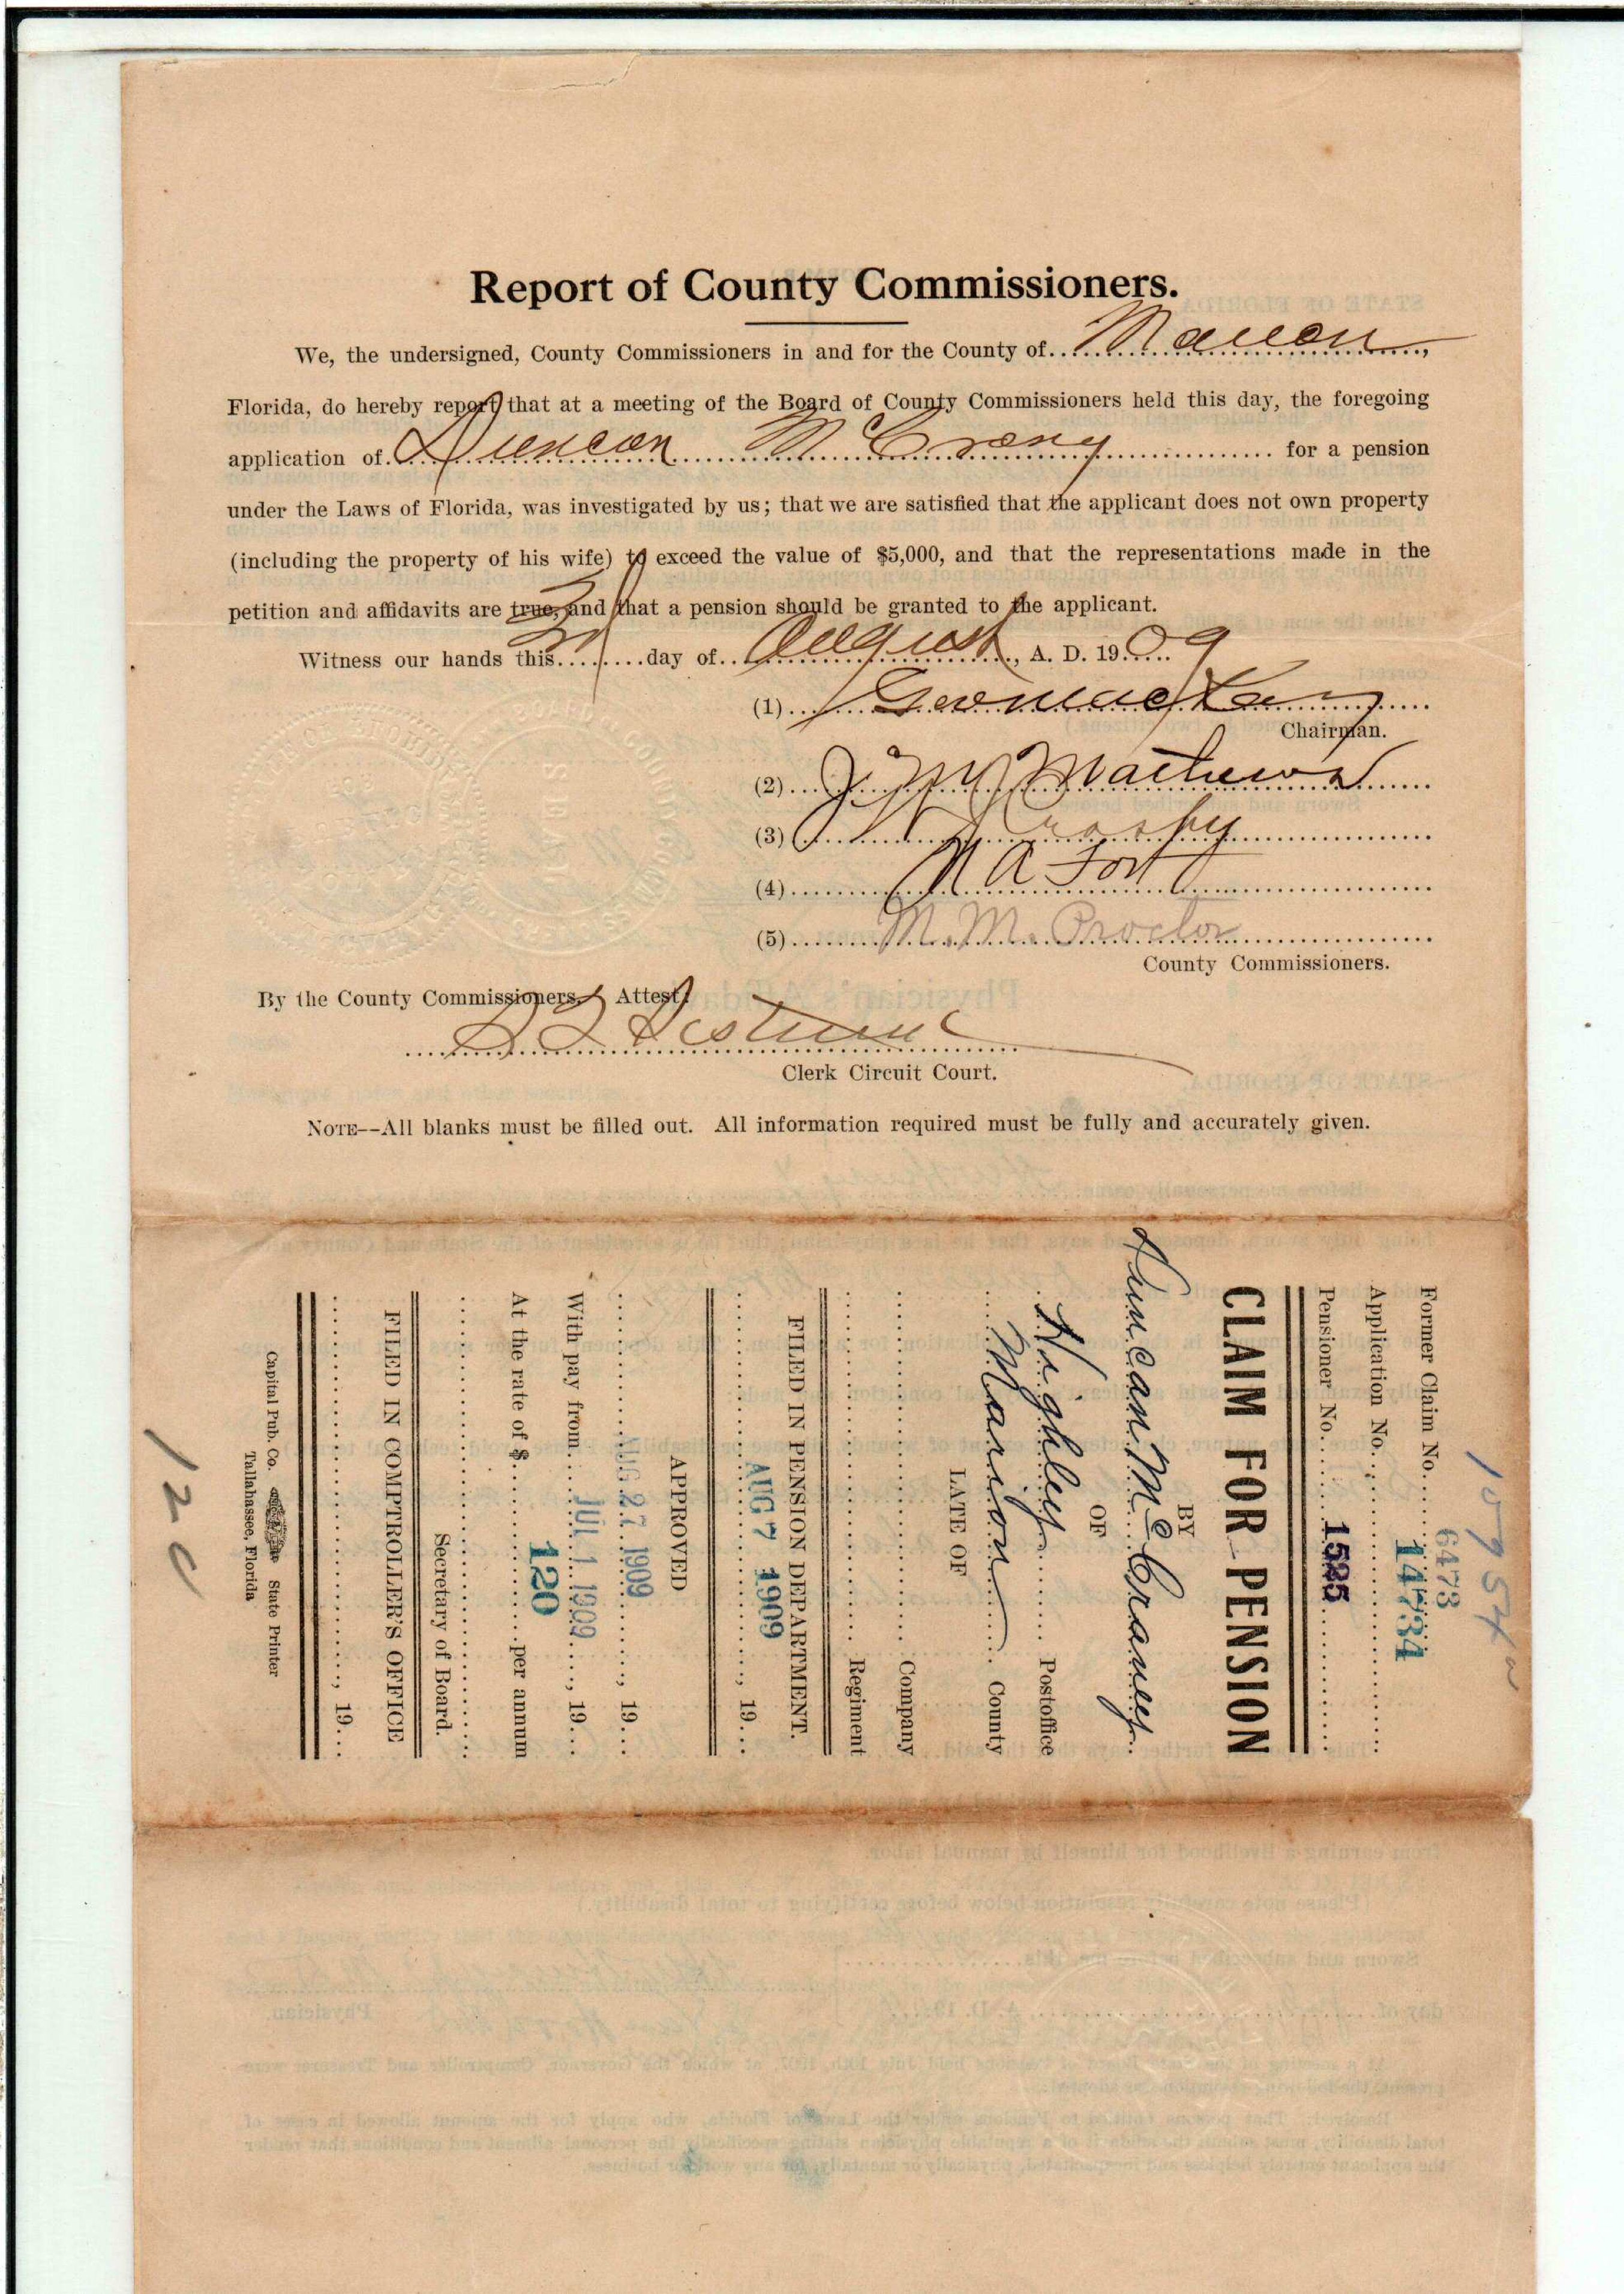 Report of County Commissioners.
We, the undersigned, County Commissioners in and for the County of Marion,
Florida, do hereby report that at a meeting of the Board of County Commissioners held this day, the foregoing
application of Duncan McCrany for a pension
under the Laws of Florida, was investigated by us; that we are satisfied that the applicant does not own property
(including the property of his wife) to exceed the value of $5,000, and that the representations made in the
petition and affidavits are true, and that a pension should be granted to the applicant.
Witness our hands this 3 day of August, A. D. 1909
(1) Geo Mackay
Chairman.
(2) J M Mathews
(3) Crosby
(4) N A Fort
(5) M. M. Proctor
County Commissioners.
By the County Commissioners, Attest:
Clerk Circuit Court.
NOTE--All blanks must be filled out. All information required must be fully and accurately given.
Former Claim No. 6473
Application No. 14734
Pensioner No. 1525
CLAIM FOR PENSION
BY
Duncan McCraney
OF
Highley Postoffice
Marion County
LATE OF
Company
Regiment
FILED IN PENSION DEPARTMENT.
AUG 7 1909, 19
APPROVED
AUG 27 1909, 19
With pay from JUL 1 1909, 19
At the rate of $ 120 per annum
Secretary of Board.
FILED IN COMPTROLLER'S OFFICE
, 19
Capital Pub. Co. State Printer
Tallahassee, Florida